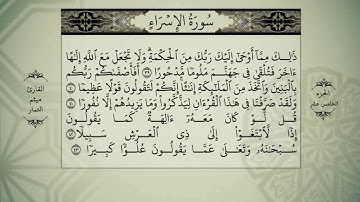 سُورَةُ الإِسْرَاءِ
ذَٰلِكَ مِمَّا أَوْحَىٰ إِلَيْكَ رَبُّكَ مِنَ الْحِكْمَةِ وَلَا تَجْعَلْ مَعَ اللَّهِ إِلَٰهًا
ءَاخَرَ فَتُلْقَىٰ فِي جَهَنَّمَ مَلُومًا مَدْحُورًا ٣٩ أَفَأَصْفَىٰكُمْ رَبُّكُم
بِالْبَنِينَ وَاتَّخَذَ مِنَ الْمَلَٰئِكَةِ إِنَٰثًا إِنَّكُمْ لَتَقُولُونَ قَوْلًا عَظِيمًا ٤٠
وَلَقَدْ صَرَّفْنَا فِي هَٰذَا الْقُرْءَانِ لِيَذَّكَّرُوا وَمَا يَزِيدُهُمْ إِلَّا نُفُورًا ٤١
قُل لَّوْ كَانَ مَعَهُ ءَالِهَةٌ كَمَا يَقُولُونَ
إِذًا لَّابْتَغَوْا إِلَىٰ ذِي الْعَرْشِ سَبِيلًا ٤٢
سُبْحَٰنَهُ وَتَعَٰلَىٰ عَمَّا يَقُولُونَ عُلُوًّا كَبِيرًا ٤٣
القارئ
ميثم
التمار
الجزء
الخامس عشر